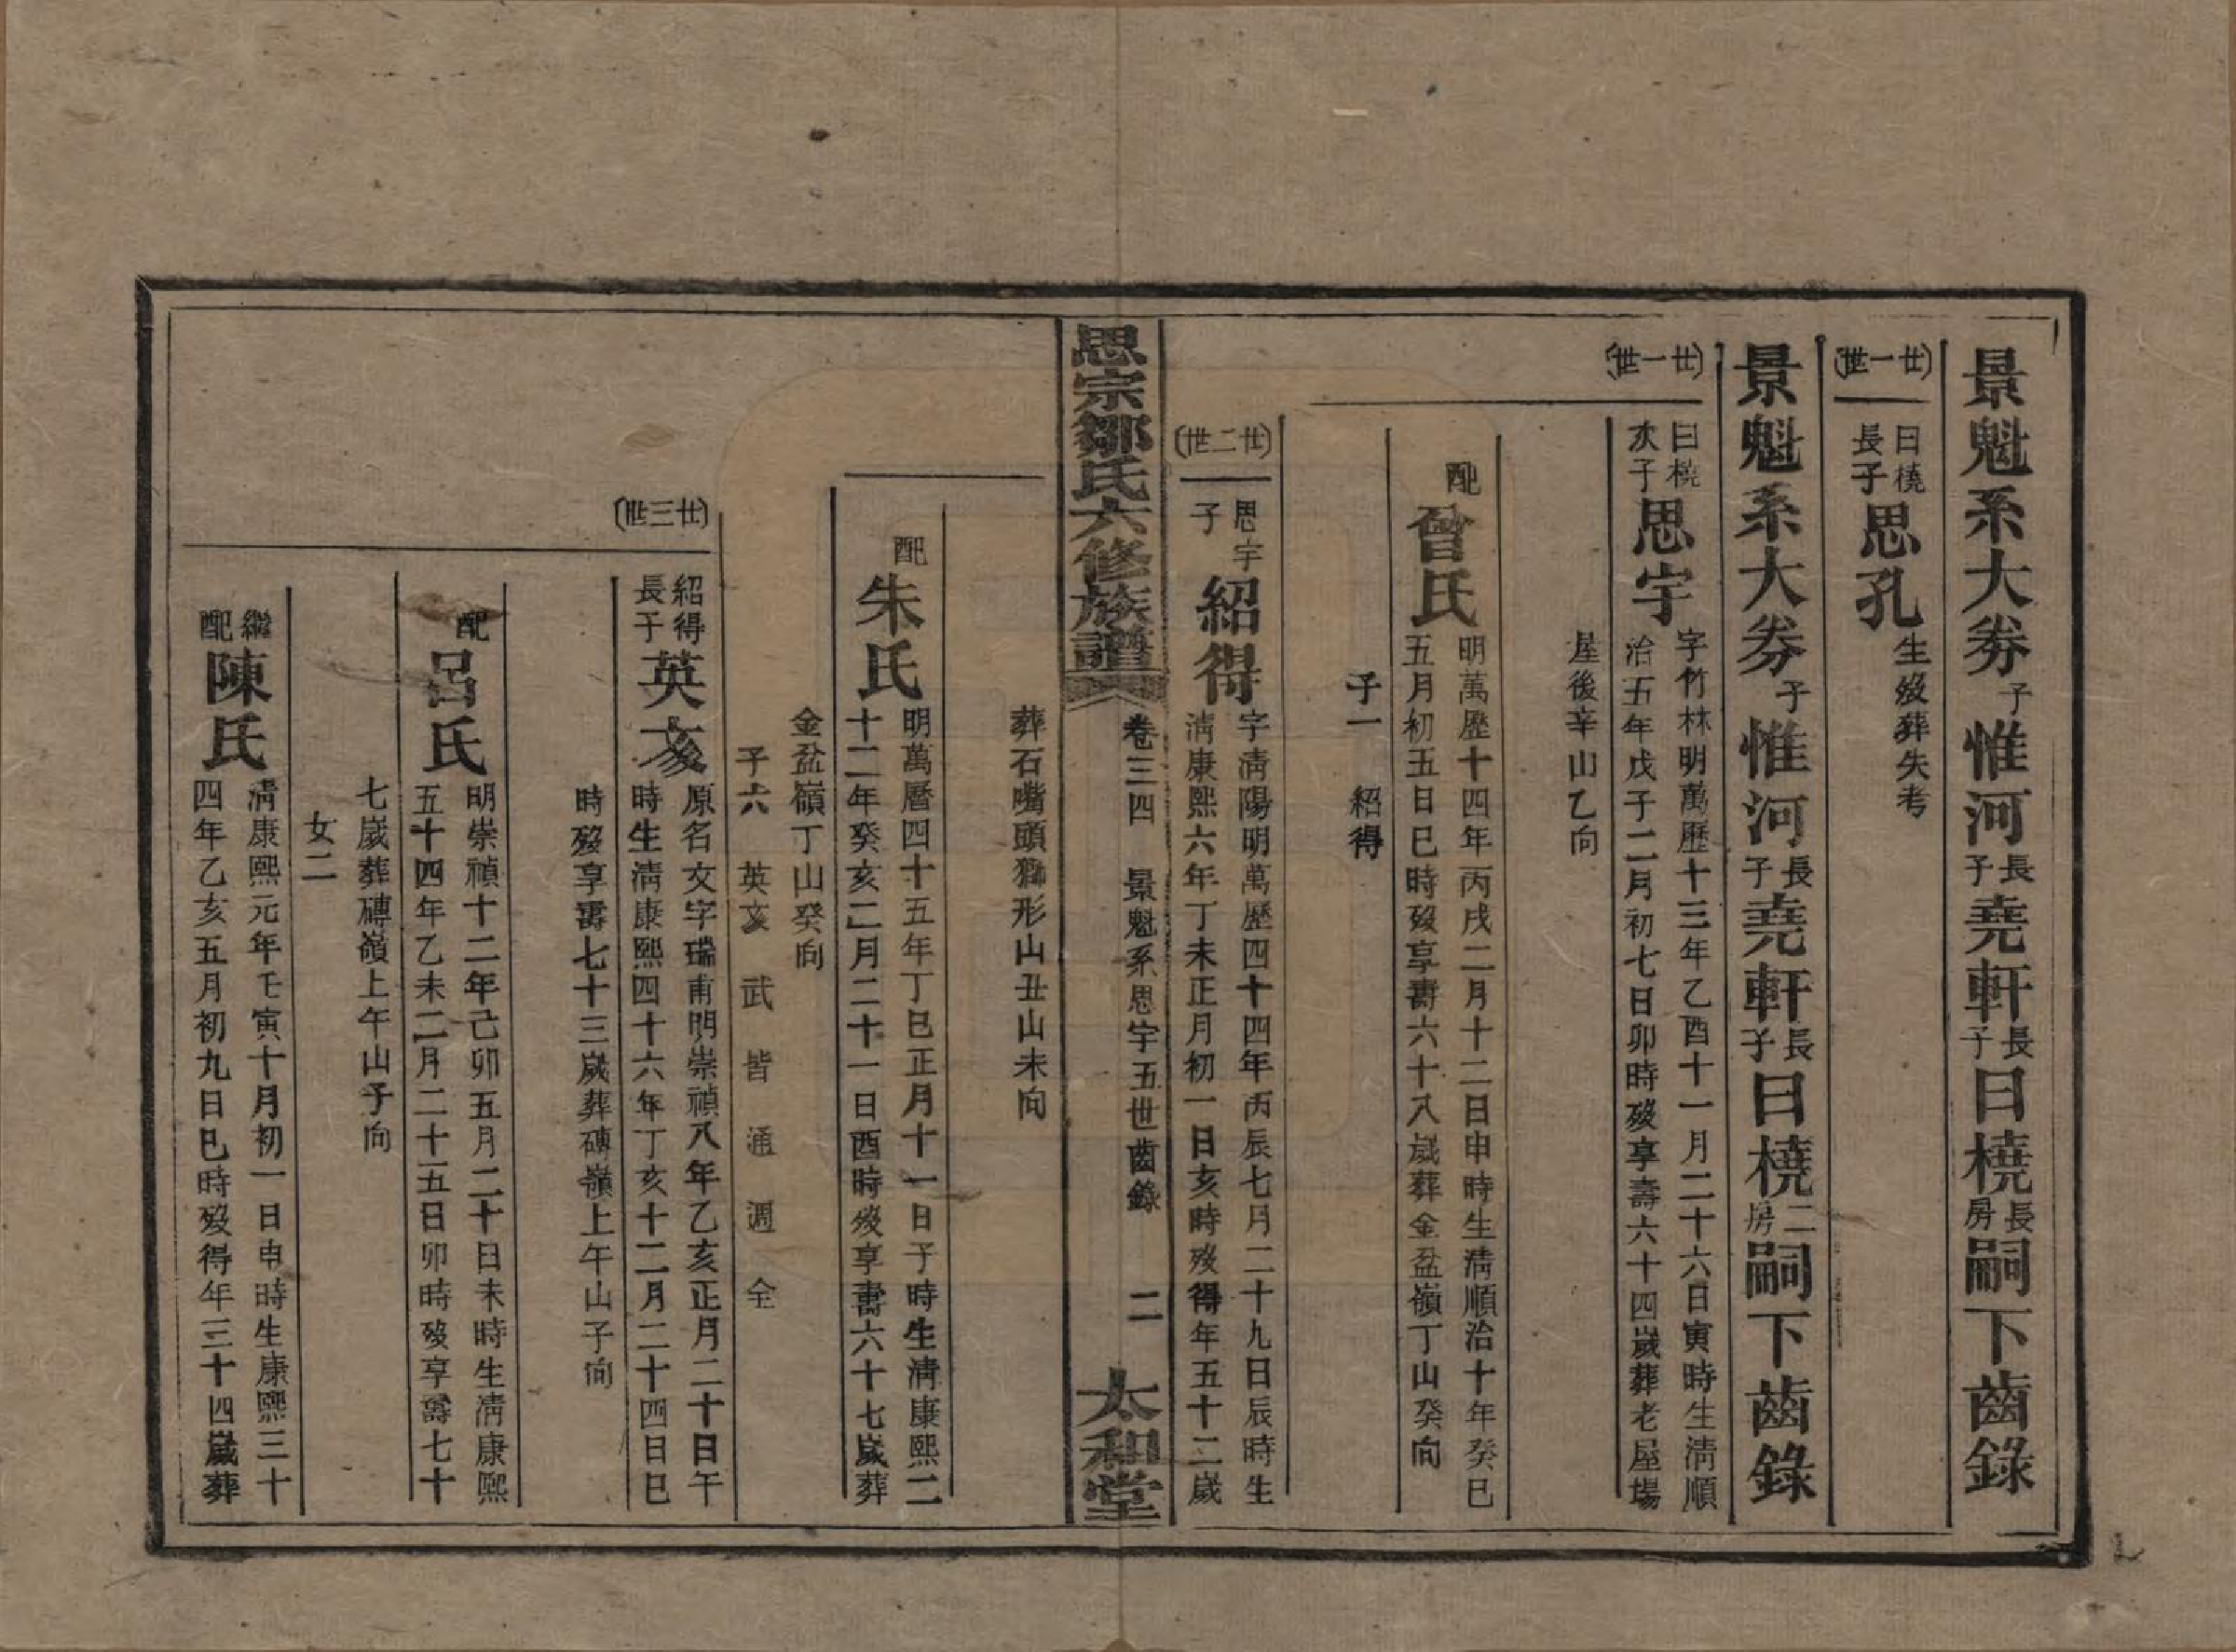 景魁系大劵子惟河長子堯軒長子曰橈長房嗣下齒錄
(廿一世)
曰橈長子思孔生歿葬失考
景魁系大劵子惟河長子堯軒長子曰橈二房嗣下齒錄
(廿一世)
曰橈次子思宇字竹林明萬歷十三年乙酉十一月二十六日寅時生淸順
治五年戊子二月初七日卯時歿享壽六十四歲葬老屋場
屋後辛山乙向
配曾氏明萬歷十四年丙戌二月十二日申時生淸順治十年癸巳
五月初五日巳時歿享壽六十八歲葬金盆嶺丁山癸向
子一 紹得
(廿二世)
思宇子紹得字淸陽明萬歷四十四年丙辰七月二十九日辰時生
淸康熙六年丁未正月初一日亥時歿得年五十二歲
思宗鄒氏六修族譜 卷三四 景魁系思宇五世齒錄 二 太和堂
葬石嘴頭獅形山丑山未向
配朱氏明萬曆四十五年丁巳正月十一日子時生淸康熙二
十二年癸亥二月二十一日酉時歿享壽六十七歲葬
金盆嶺丁山癸向
子六 英亥 武 皆 通 週 全
(廿三世)
紹得長子英亥原名文字瑞甫明崇禎八年乙亥正月二十日午
時生淸康熙四十六年丁亥十二月二十四日巳
時歿享壽七十三歲葬磚嶺上午山子向
配呂氏明崇禎十二年己卯五月二十日未時生淸康熙
五十四年乙未二月二十五日卯時歿享壽七十
七歲葬磚嶺上午山子向
女二
繼配陳氏淸康熙元年壬寅十月初一日申時生康熙三十
四年乙亥五月初九日巳時歿得年三十四歲葬